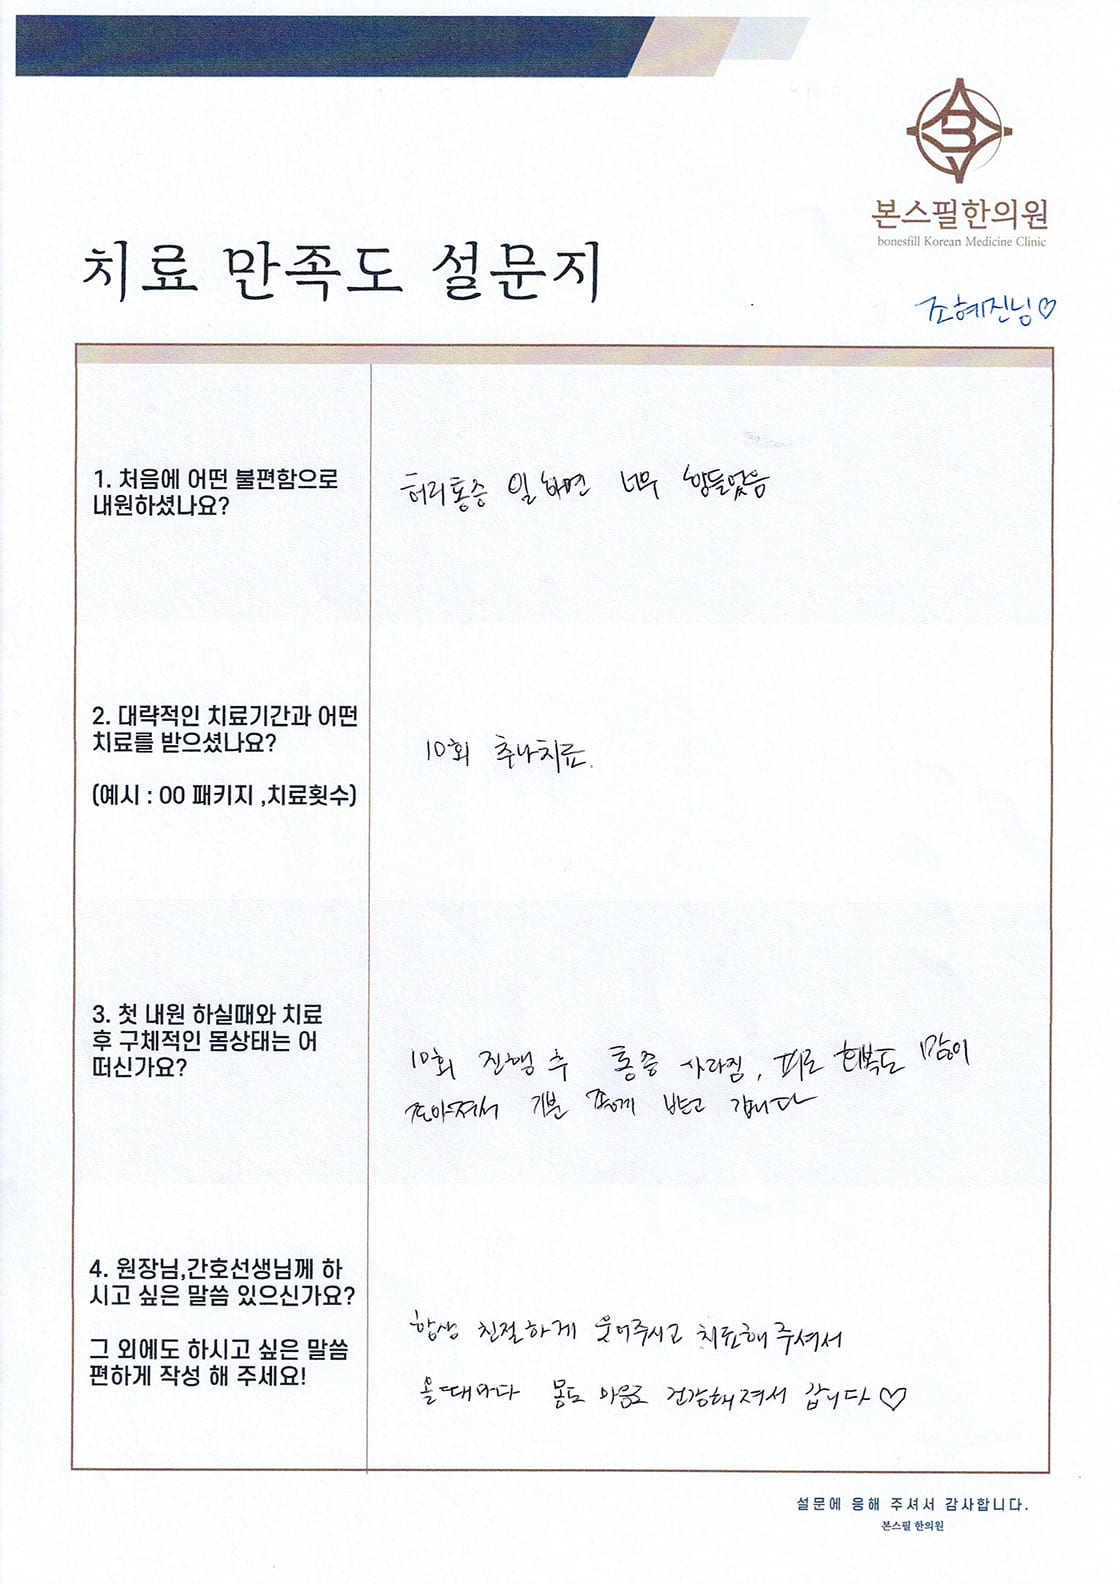 본스필한의원
bonesfill Korean Medicine Clinic
치료 만족도 설문지
조혜진님♡
1. 처음에 어떤 불편함으로
내원하셨나요?
허리통증 일하면 너무 힘들었음
2. 대략적인 치료기간과 어떤
치료를 받으셨나요?
(예시 : 00 패키지 ,치료횟수)
10회 추나치료.
3. 첫 내원 하실때와 치료
후 구체적인 몸상태는 어
떠신가요?
10회 진행 후 통증 사라짐, 피로 회복도 많이
좋아져서 기분 좋게 받고 갑니다
4. 원장님,간호선생님께 하
시고 싶은 말씀 있으신가요?
그 외에도 하시고 싶은 말씀
편하게 작성 해 주세요!
항상 친절하게 웃어주시고 치료해 주셔서
올때마다 몸도 마음도 건강해져서 갑니다♡
설문에 응해 주셔서 감사합니다.
본스필 한의원